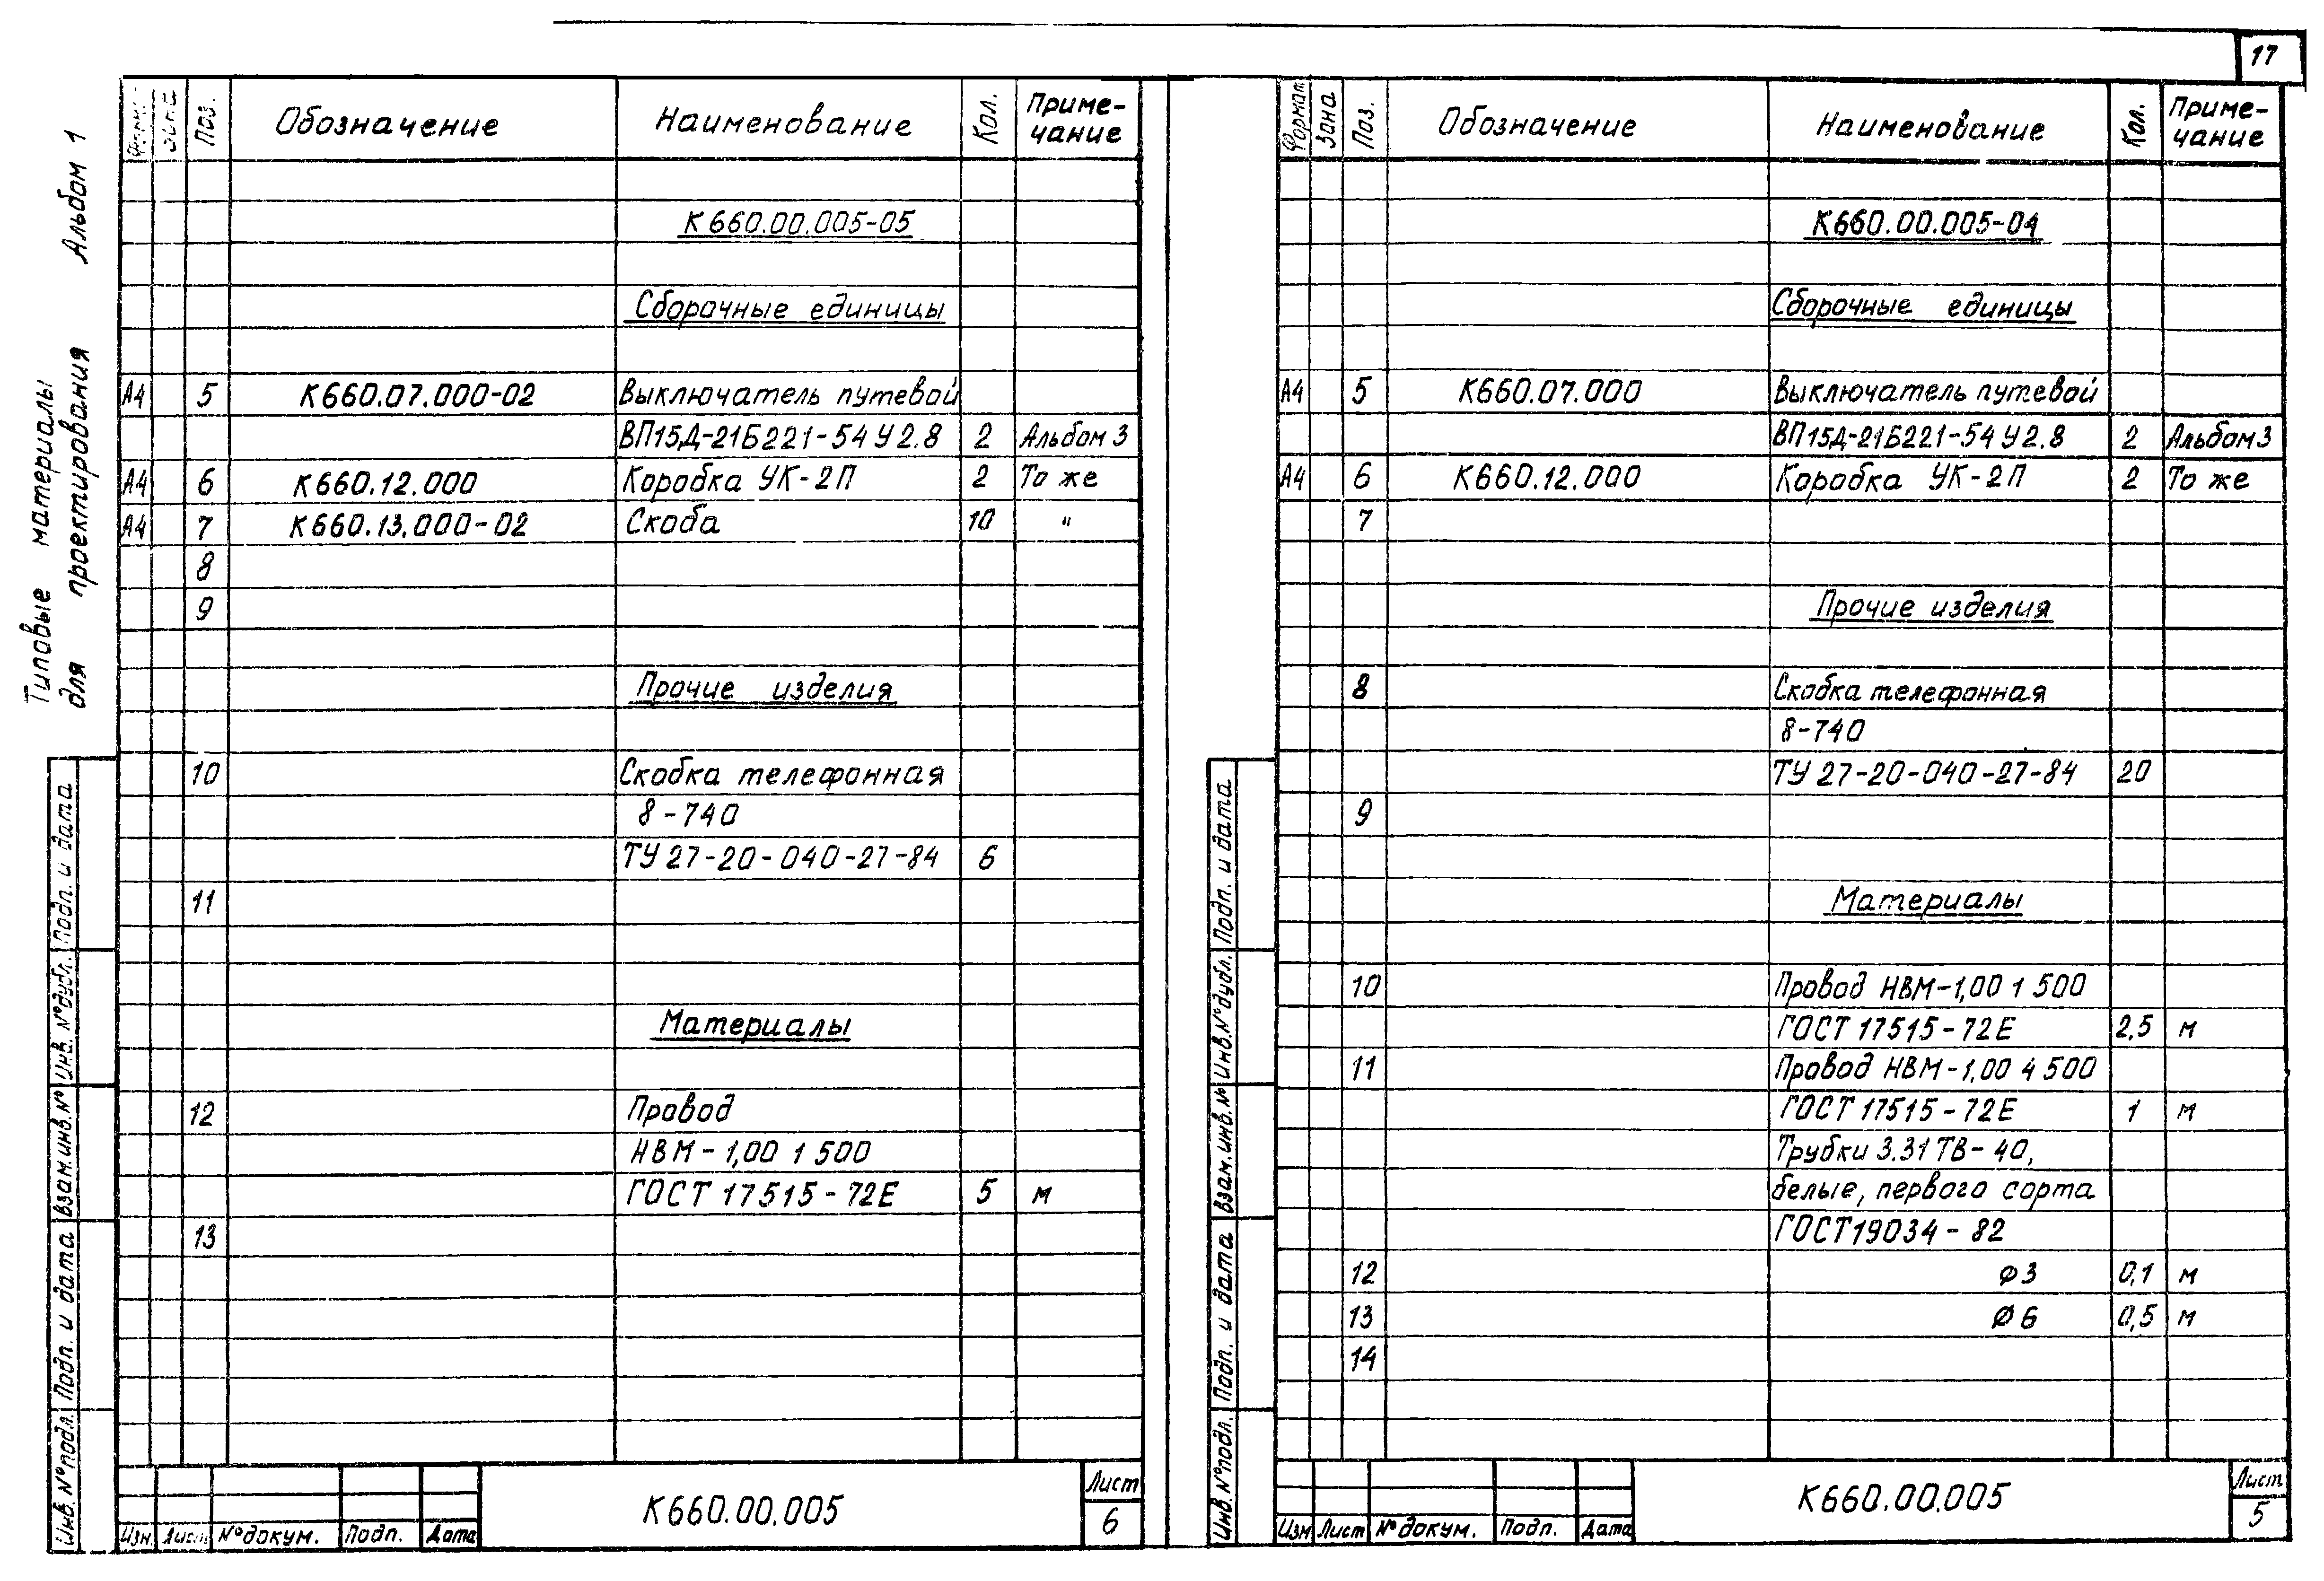 17
Типовые материалы
для проектирования Альбом 1
Поз. Обозначение Наименование Кол. Приме-
чание
К660.00.005-05
Сборочные единицы
А4 5 К660.07.000-02 Выключатель путевой
ВП15Д-21Б221-54У2.8 2 Альбом 3
А4 6 К660.12.000 Коробка УК-2П 2 То же
А4 7 К660.13.000-02 Скоба 10 "
8
9
Прочие изделия
10 Скобка телефонная
8-740
ТУ 27-20-040-27-84 6
11
Материалы
12 Провод
НВМ-1,00 1 500
ГОСТ 17515-72Е 5 м
13
Инв.№подл. Подп. и дата Взам.инв.№ Инв.№дубл. Подп. и дата
Изм. Лист №докум. Подп. Дата
К660.00.005
Лист
6
Формат Зона Поз. Обозначение Наименование Кол. Приме-
чание
К660.00.005-04
Сборочные единицы
А4 5 К660.07.000 Выключатель путевой
ВП15Д-21Б221-54У2.8 2 Альбом 3
А4 6 К660.12.000 Коробка УК-2П 2 То же
7
Прочие изделия
8 Скобка телефонная
8-740
ТУ 27-20-040-27-84 20
9
Материалы
10 Провод НВМ-1,00 1 500
ГОСТ 17515-72Е 2,5 м
11 Провод НВМ-1,00 4 500
ГОСТ 17515-72Е 1 м
Трубки 3.31 ТВ-40,
белые, первого сорта
ГОСТ19034-82
12 ø3 0,1 м
13 ø6 0,5 м
14
Инв.№подл. Подп. и дата Взам.инв.№ Инв.№дубл. Подп. и дата
Изм Лист №докум. Подп. Дата
К660.00.005
Лист
5